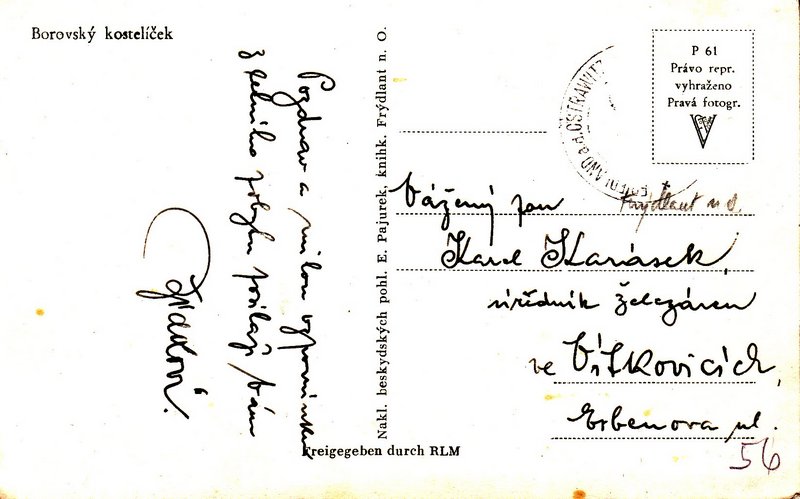 Borovský kostelíček
Pozdrav a milou vzpomínku
z letního pobytu posílají Vám
Nakl. beskydských pohl. E. Pajurek, knihk. Frýdlant n. O.
P 61
Právo repr.
vyhraženo
Pravá fotogr.
FRIEDLAND a.d. OSTRAWITZ
Frýdlant n O.
Vážený pan
Karel Karásek,
úředník železáren
ve Vítkovicích,
Erbenova ul.
56
Freigegeben durch RLM